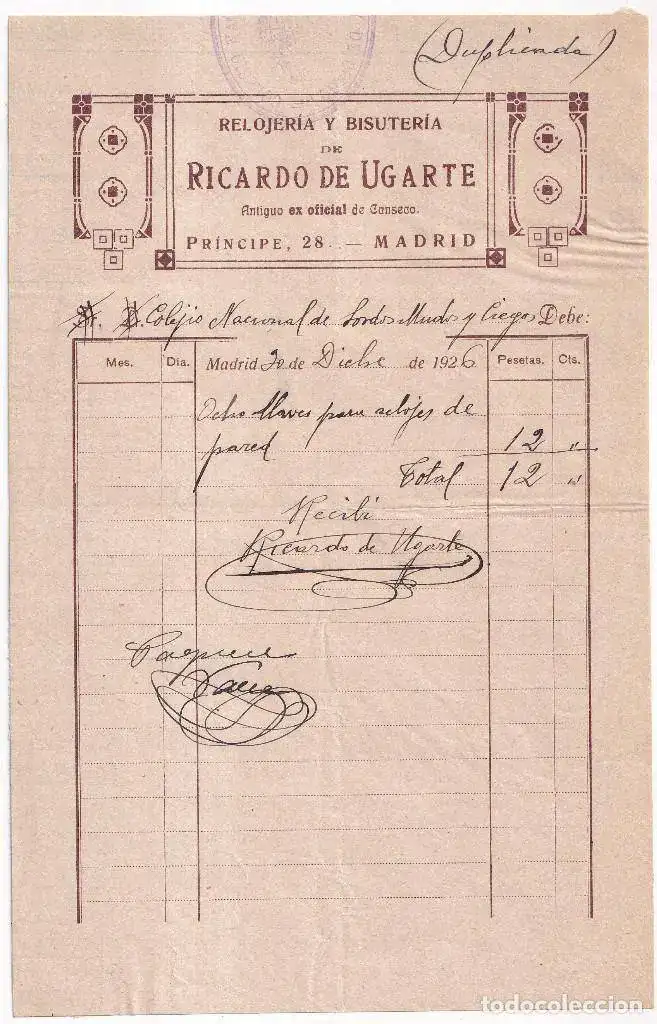 (Duplicado)
RELOJERÍA Y BISUTERÍA
DE
RICARDO DE UGARTE
Antiguo ex oficial de Canseco.
PRÍNCIPE, 28. — MADRID
Sr. D. Colegio Nacional de Sordos Mudos y Ciegos Debe:
Mes. Día. Madrid 20 de Dicbe de 1926 Pesetas. Cts.
Ocho llaves para relojes de
pared 12 "
Total 12 "
Recibí
Ricardo de Ugarte
Páguese
todocoleccion